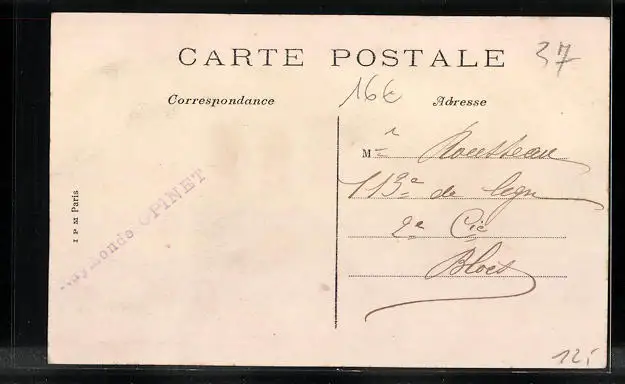 CARTE POSTALE
37
Correspondance
16€
Adresse
M r Rousseau
113e de ligne
2e Cie
Blois
I P M Paris
Raymonde OPINET
12,